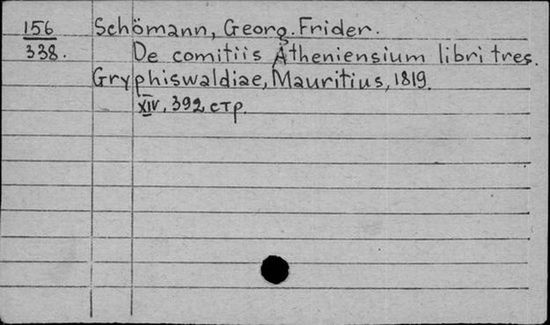 156 Schömann, Georg. Frider.
338. De comitiis Atheniensium libri tres.
Gryphiswaldiae, Mauritius, 1819.
XIV, 392 стр.